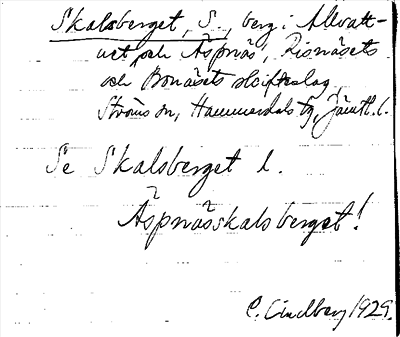 Skalsberget, S., berg i Allvatt-
net och Äspnäs, Risnäsets
och Bonäsets skifteslag,
Ströms sn, Hammerdals tg, Jämtl. l.
Se Skalsberget l.
Äspnässkalsberget!
C. Lindberg 1929.